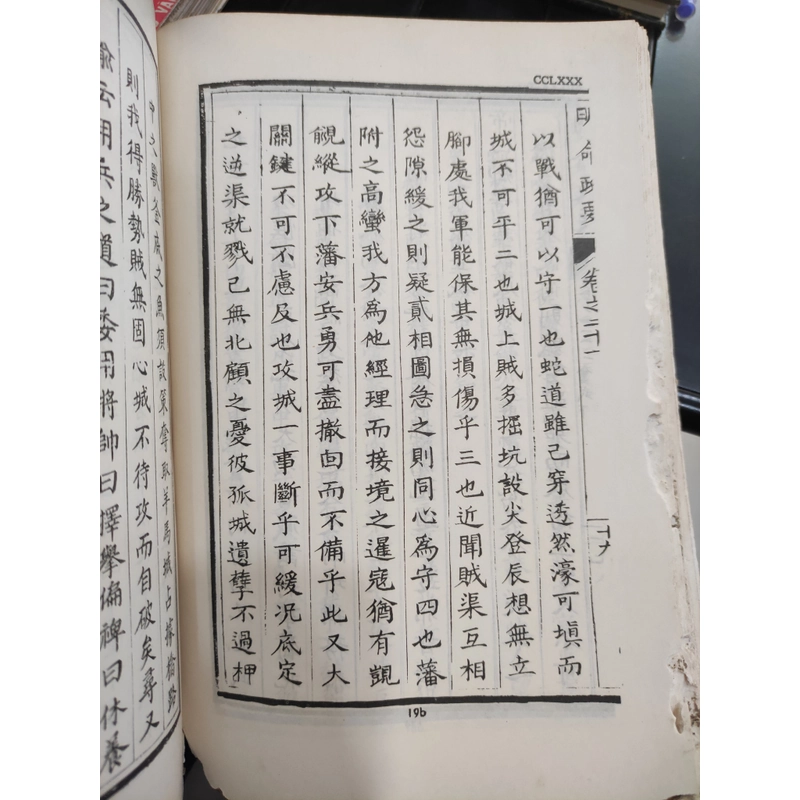 CCLXXX
明命政要
卷之二十一
十九
以戰猶可以守一也蛇道雖已穿透然濠可塡而
城不可平二也城上賊多掘坑設尖登辰想無立
腳處我軍能保其無損傷乎三也近聞賊渠互相
怨隙緩之則疑貳相圖急之則同心為守四也藩
附之高蠻我方為他經理而接境之暹寇猶有覬
覦縱攻下藩安兵勇可盡撤囬而不備乎此又大
關鍵不可不慮及也攻城一事斷乎可緩况底定
之逆渠就戮已無北顧之憂彼孤城遺孽不過柙
中之獸釜底之魚須設策奪取羊馬城占據
則我得勝勢賊無固心城不待攻而自破矣尋又
諭云用兵之道曰委用將帥曰擇舉偏裨曰休養
19b